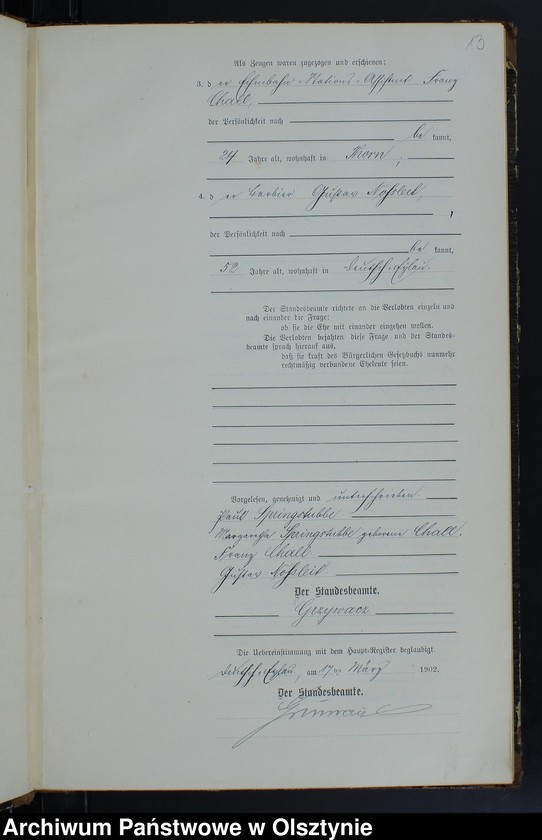 13
Als Zeugen waren zugezogen und erschienen:
3. d er Eisenbahn-Stations-Assistent Franz
Chall,
der Persönlichkeit nach
be kannt,
24 Jahre alt, wohnhaft in Thorn;
4. d er Barbier Gustav
der Persönlichkeit nach
be kannt,
52 Jahre alt, wohnhaft in Deutsch-Eylau.
Der Standesbeamte richtete an die Verlobten einzeln und
nach einander die Frage:
ob sie die Ehe mit einander eingehen wollen.
Die Verlobten bejahten diese Frage und der Standes-
beamte sprach hierauf aus,
daß sie kraft des Bürgerlichen Gesetzbuchs nunmehr
rechtmäßig verbundene Eheleute seien.
Vorgelesen, genehmigt und unterschrieben
Paul Springstubbe
Margaretha Springstubbe geborene Chall.
Franz Chall
Gustav
Der Standesbeamte.
Grzywacz
Die Uebereinstimmung mit dem Haupt-Register beglaubigt.
Deutsch-Eylau, am 17ten März 1902.
Der Standesbeamte.
Archiwum Państwowe w Olsztynie